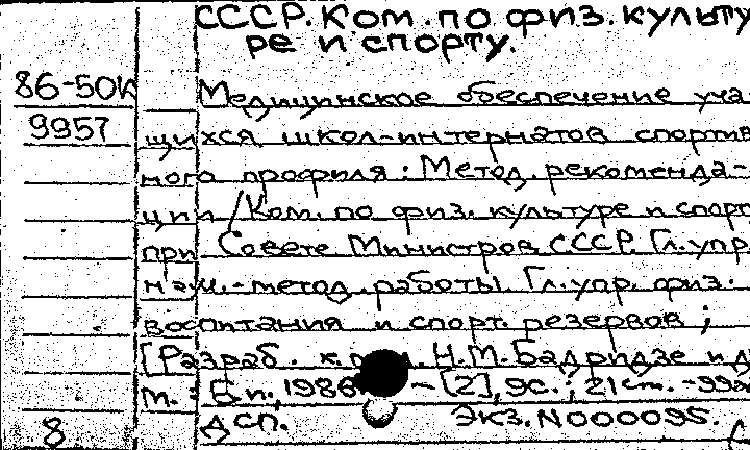 СССР. Ком. по физ. культу
ре и спорту.
86-50К
9957
Медицинское обеспечение уча
щихся школ-интернатов спортив
ного профиля: Метод. рекоменда-
ции / Ком. по физ. культуре и спорт
при Совете Министров СССР. Гл. упр.
науч.-метод. работы. Гл. упр. физ.
воспитания и спорт. резервов;
[Разраб. Н.М. Бадридзе и д
М.: Б.и., 1986 - [2], 9с.; 21см. - 99
8
Дсп. Экз. N000095.